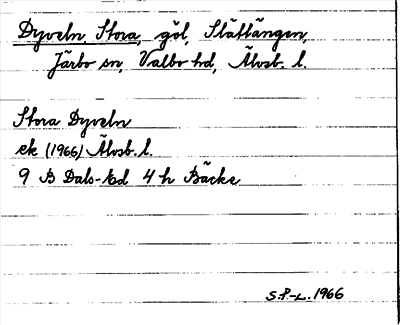 Dyveln, Stora, göl, Slättängen,
Järbo sn, Valbo hd, Älvsb. l.
Stora Dyveln
ek (1966) Älvsb. l.
9 B Dals-Ed 4 h Bäcke
S.P-L. 1966